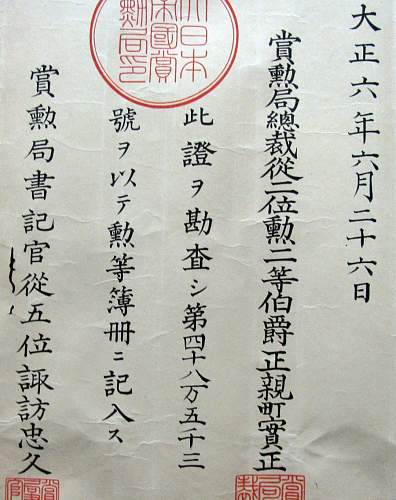 大正六年六月二十六日
賞勲局總裁從二位勲二等伯爵正親町實正
此證ヲ勘査シ第四十八万五千三
號ヲ以テ勲等簿冊ニ記入ス
賞勲局書記官從五位諏訪忠久
日本
國賞
局印